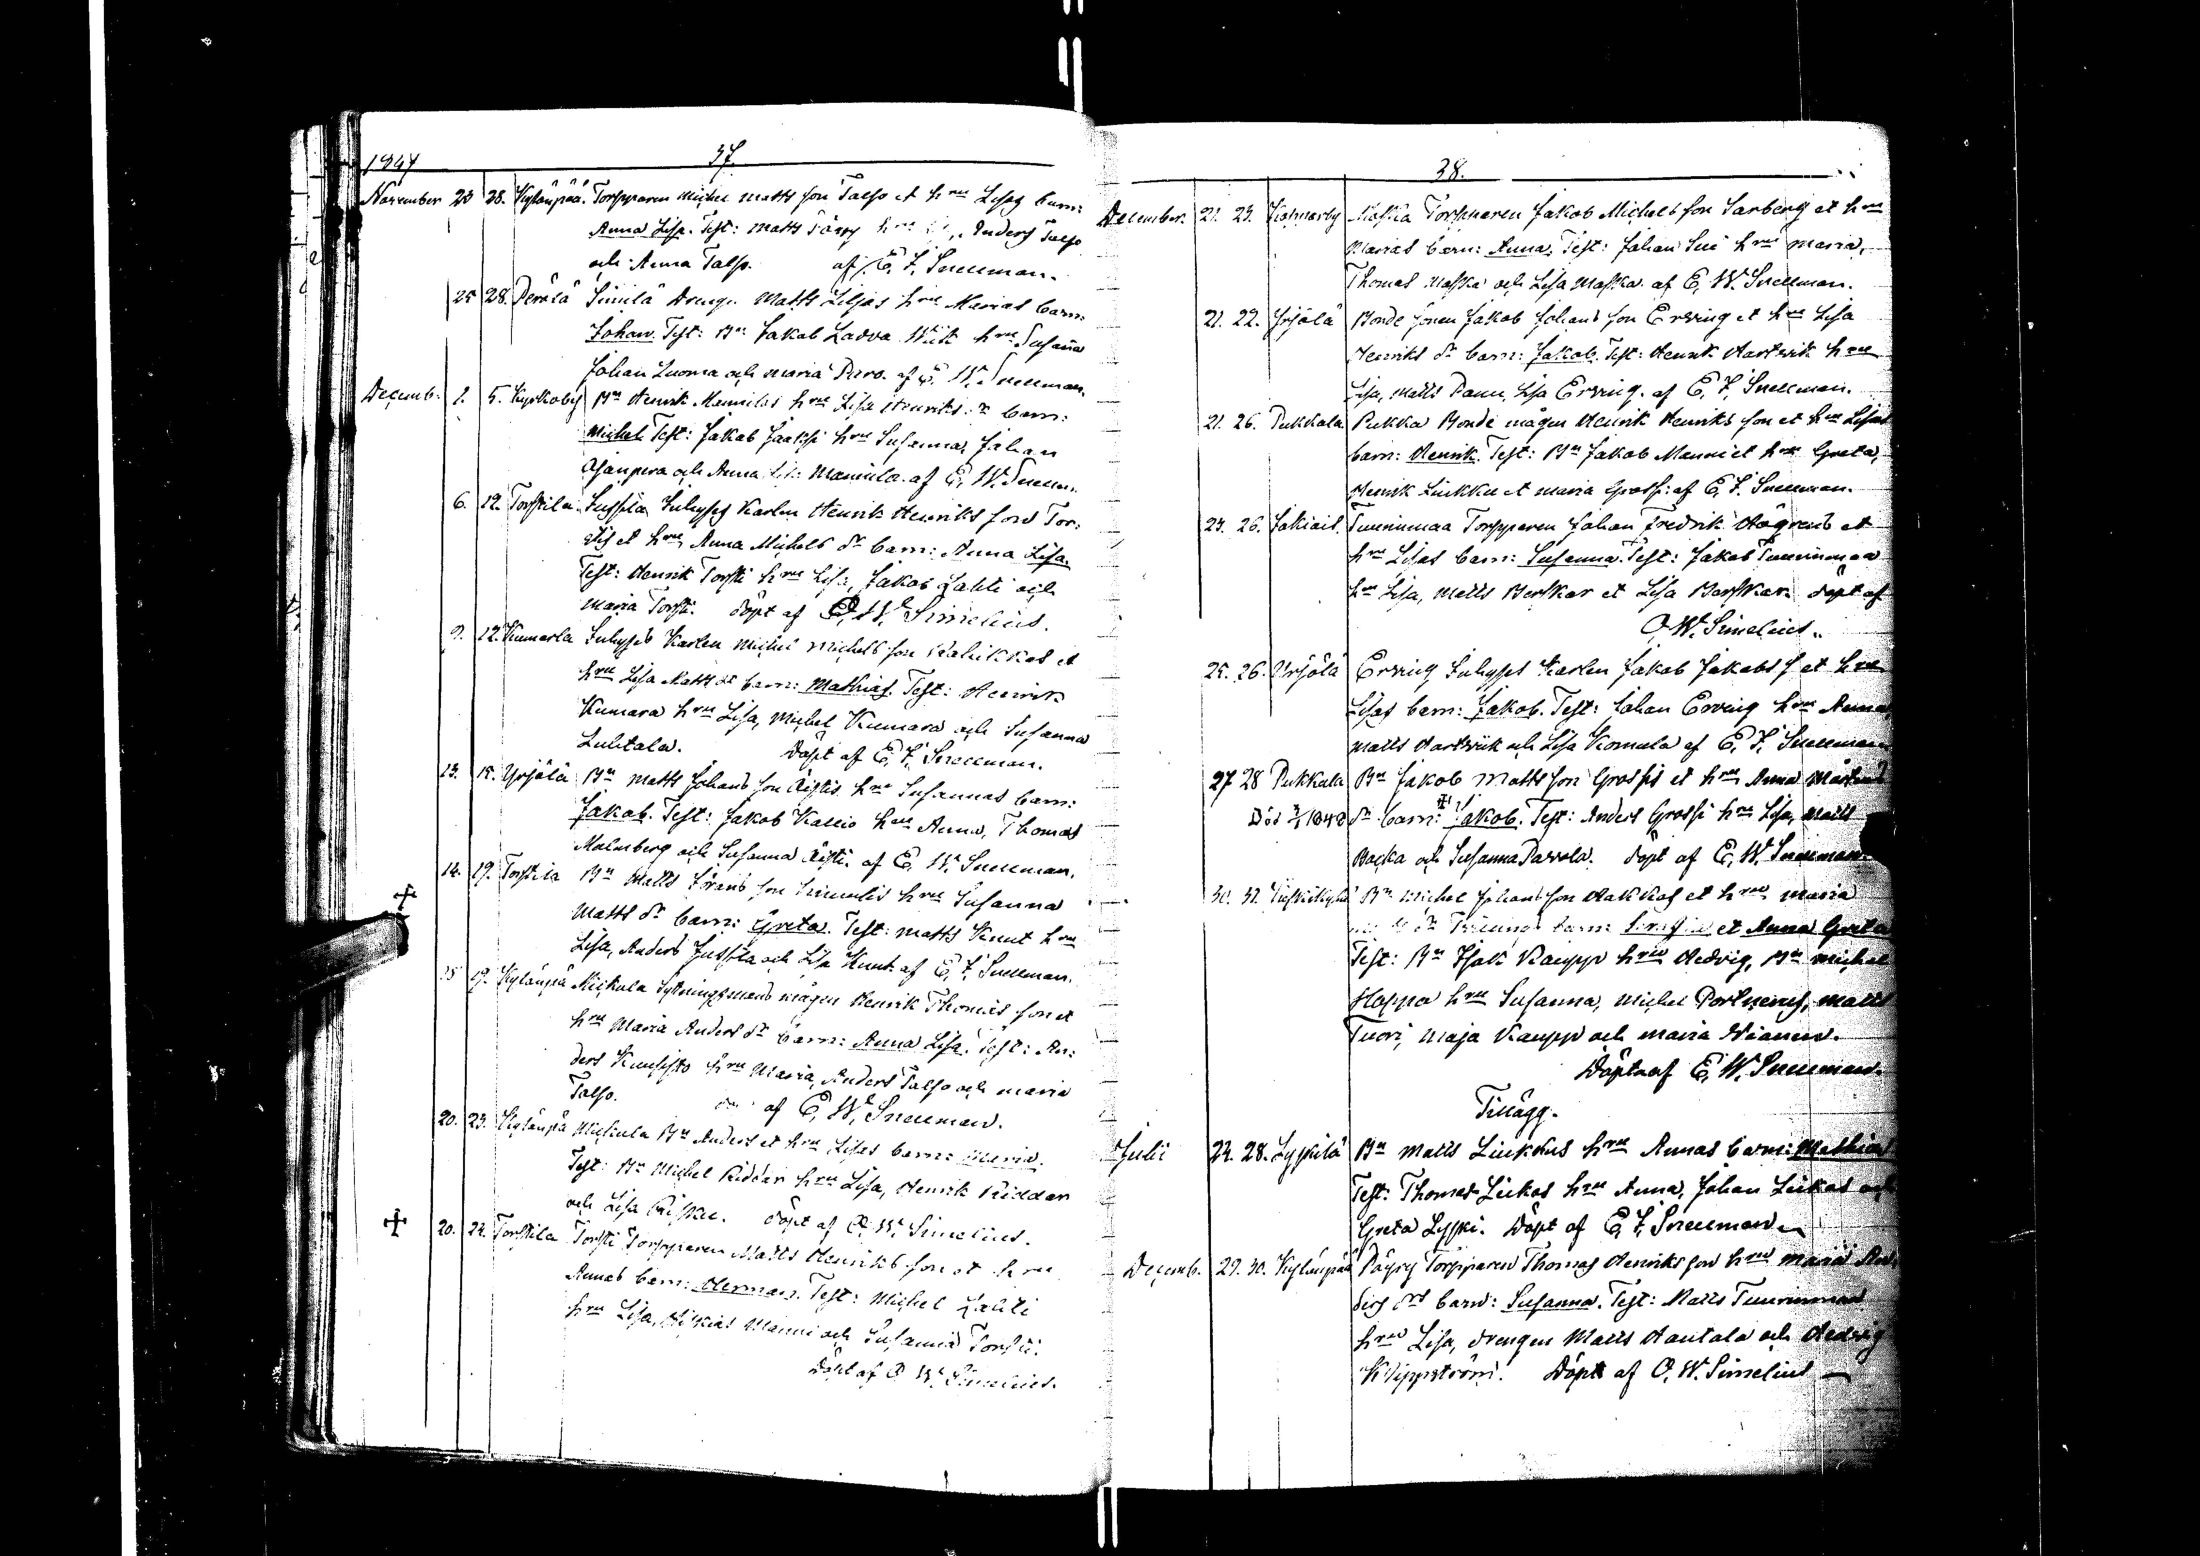 1847 37.
November 23 28. Kyläupää. Torpparen Michel Matts son Talso et hru Lisas barn:
Anna Lisa. Test: Matts hru Anders Talso
och Anna Talso. af E. F. Snellman.
25 28. Perälä Simila Dreng. Matts hru Marias barn:
Johan. Test: Bn Jakob Ladva hru Susana
Johan Luoma och Maria Puro. af E. W. Snellman.
Decemb. 1. 5. Kyrkoby Bn Henrik Mannilas hru Lisa Henriks dr barn:
Michel. Test: Jakob Jaakși hru Susanna, Johan
och Anna Mannila. af E. W. Snellm.
6. 12. Torstila Jussila Inhyses Karlen Henrik Henriks sons Tor:
stis et hru Anna Michels dr barn: Anna Lisa.
Test: Henrik Torsti hru Lisa, Jakob Lahti och
Maria Torsti. döpt af O. W. Simelius.
9. 12. Kumarla Inhyses Karlen Michel Michels son et
hru Lisa Matts dr barn: Mathias. Test: Henrik
Kumara hru Lisa, Michel Kumara och Susanna
Luhtala. Döpt af E. F. Snellman.
13. 15. Yrjälä Bn Matts Johans son Äistis hru Susannas barn:
Jakob. Test: Jakob Kallio hru Anna, Thomas
Malmberg och Susanna Äisti. af E. W. Snellman.
14. 19. Torstila Bn Matts Görans son hru Susanna
Matts dr barn: Greta. Test: Matts Knut hru
Lisa, Anders Jussila och Lisa Knut. af E. F. Snellman.
15 19. Kyläupä Mickula Sytningsmans mågen Henrik Thomas son et
hru Maria Anders dr barn: Anna Lisa. Test: An:
ders Kuusisto hru Maria, Anders Talso och Maria
Talso. af E. W. Snellman.
20. 23. Kyläupä Mickula Bn Anders et hru Lisas barn: Maria.
Test: Bn Michel Riddar hru Lisa, Henrik Riddar
och Lisa döpt af O. W. Simelius.
20. 22. Torstila Torsti Torpparen Matts Henriks son et hru
Annas barn: Herman. Test: Michel Lahti
hru Lisa, Manni och Susanna Torsti.
Döpt af O. W. Simelius.
38.
December. 21. 23. Kolmarby Maska Torpparen Jakob Michels son Sarberg et hru
Marias barn: Anna. Test: Johan hru Maria,
Thomas Maska och Lisa Maska. af E. W. Snellman.
21. 22. Yrjälä Bonde sonen Jakob Johans son Erving et hru Lisa
Henriks dr barn: Jakob. Test: Henrik Hartvik hru
Lisa, Matts Lisa Erving. af E. F. Snellman.
21. 26. Pukkala Pukka Bonde mågen Henrik Henriks son et hru Lisas
barn: Henrik. Test: Bn Jakob Manni et hru Greta,
Henrik Liukku et Maria Grossi. af E. F. Snellman.
23. 26. Tuurinmaa Torpparen Johan Fredrik Hägrens et
hru Lisas barn: Susanna. Test: Jakob Tuurinmaa
hru Lisa, Matts Berskar et Lisa Berskar. döpt af
O. W. Simelius.
25. 26. Yrjälä Erving Inhyses Karlen Jakob Jakobs s et hru
Lisas barn: Jakob. Test: Johan Erving hru Anna,
Matts Hartvik och Lisa Komula af E. F. Snellman
27 28 Pukkala Bn Jakob Matts son Grossis et hru Anna Mårtens
Död 1848 dr barn: Jakob. Test: Anders Grossi hru Lisa, Matts
Backa och Susanna Parrola. döpt af E. W. Snellman.
30. 31. Bn Michel Johans son Hakkas et hru Maria
barn: et Anna Greta
Test: Bn Isak Kaupp hru Hedvig, Bn Michel
Hoppa hru Susanna, Michel Matts
Tuori, Maja Kaupp och Maria
Döpta af E. W. Snellman.
Tillägg.
Julii 22. 28. Lyskilä Bn Matts Liukkus hru Annas barn: Mathias
Test: Thomas hru Anna, Johan och
Greta Lyski. Döpt af E. F. Snellman
Decemb. 29. 30. Kyläupää Päyry Torpparen Thomas Henriks son hru Maria An:
ders drs barn: Susanna. Test: Matts Tuurinmaa
hru Lisa, drengen Matts Hantala och Hedvig
Klippström. Döpt af O. W. Simelius